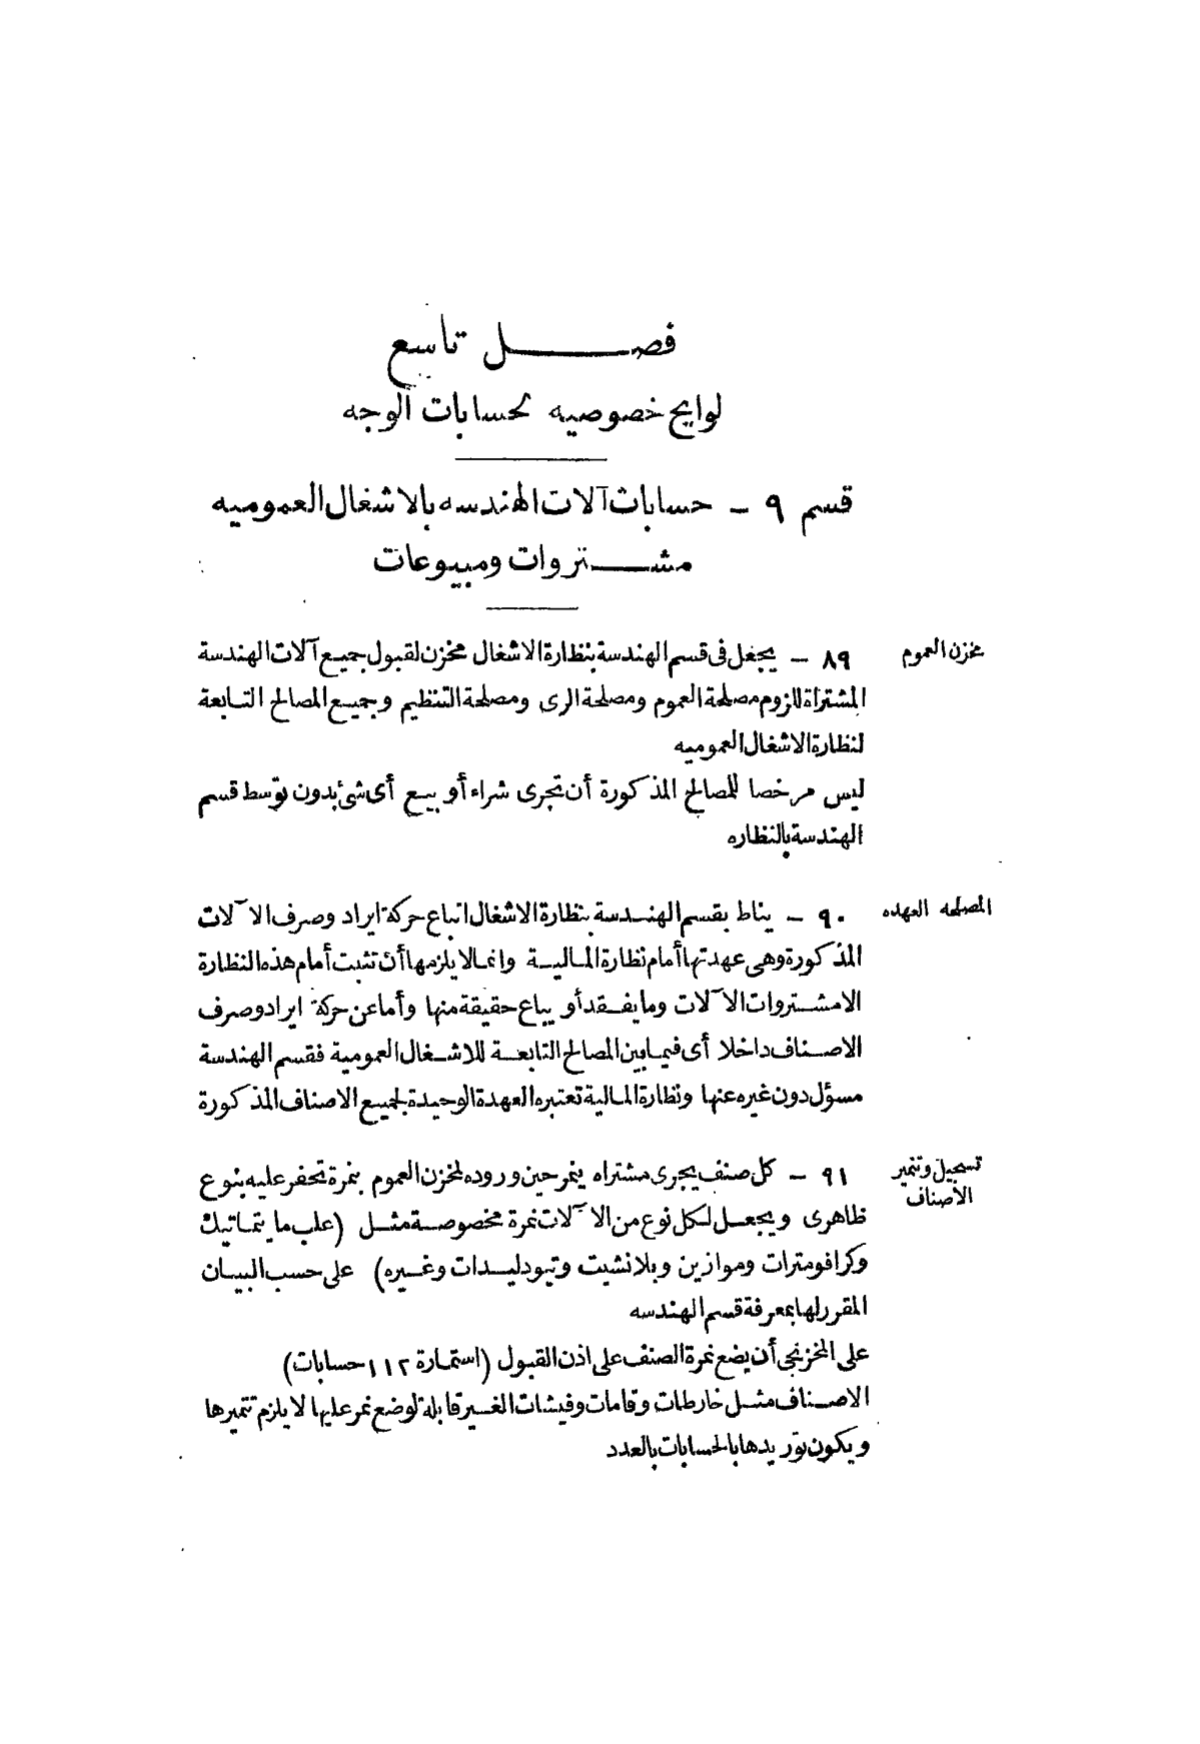 فصل تاسع
لوايح خصوصيه لحسابات الوجه
قسم ٩ – حسابات آلات الهندسه بالاشغال العموميه
مشتروات ومبيوعات
مخزن العموم
٨٩ – يجعل فى قسم الهندسة بنظارة الاشغال مخزن لقبول جميع آلات الهندسة
المشتراة للزوم مصلحة العموم ومصلحة الرى ومصلحة التنظيم وجميع المصالح التابعة
لنظارة الاشغال العموميه
ليس مرخصا للمصالح المذكورة أن تجرى شراء أو بيع أى شئ بدون توسط قسم
الهندسة بالنظاره
المصلحه العهده
٩٠ – يناط بقسم الهندسة بنظارة الاشغال اتباع حركة ايراد وصرف الآلات
المذكورة وهى عهدتها أمام نظارة المالية وانما لا يلزمها أن تثبت أمام هذه النظارة
الا مشتروات الآلات وما يفقد أو يباع حقيقة منها وأما عن حركة ايراد وصرف
الاصناف داخلا أى فيما بين المصالح التابعة للاشغال العمومية فقسم الهندسة
مسؤل دون غيره عنها ونظارة المالية تعتبره العهدة الوحيدة لجميع الاصناف المذكورة
تسجيل وتنمير
الأصناف
٩١ – كل صنف يجرى مشتراه ينمر حين وروده لمخزن العموم بنمرة تحفر عليه بنوع
ظاهرى ويجعل لكل نوع من الآلات نمرة مخصوصة مثل (علب ماتيماتيك
وكرافومترات وموازين وبلانشيت وتيودليدات وغيره) على حسب البيان
المقرر لها بمعرفة قسم الهندسه
على المخزنجى أن يضع نمرة الصنف على اذن القبول (استمارة ١١٢ حسابات)
الاصناف مثل خارطات وقامات وفيشات الغير قابلة لوضع نمر عليها لا يلزم تنميرها
ويكون توريدها بالحسابات بالعدد